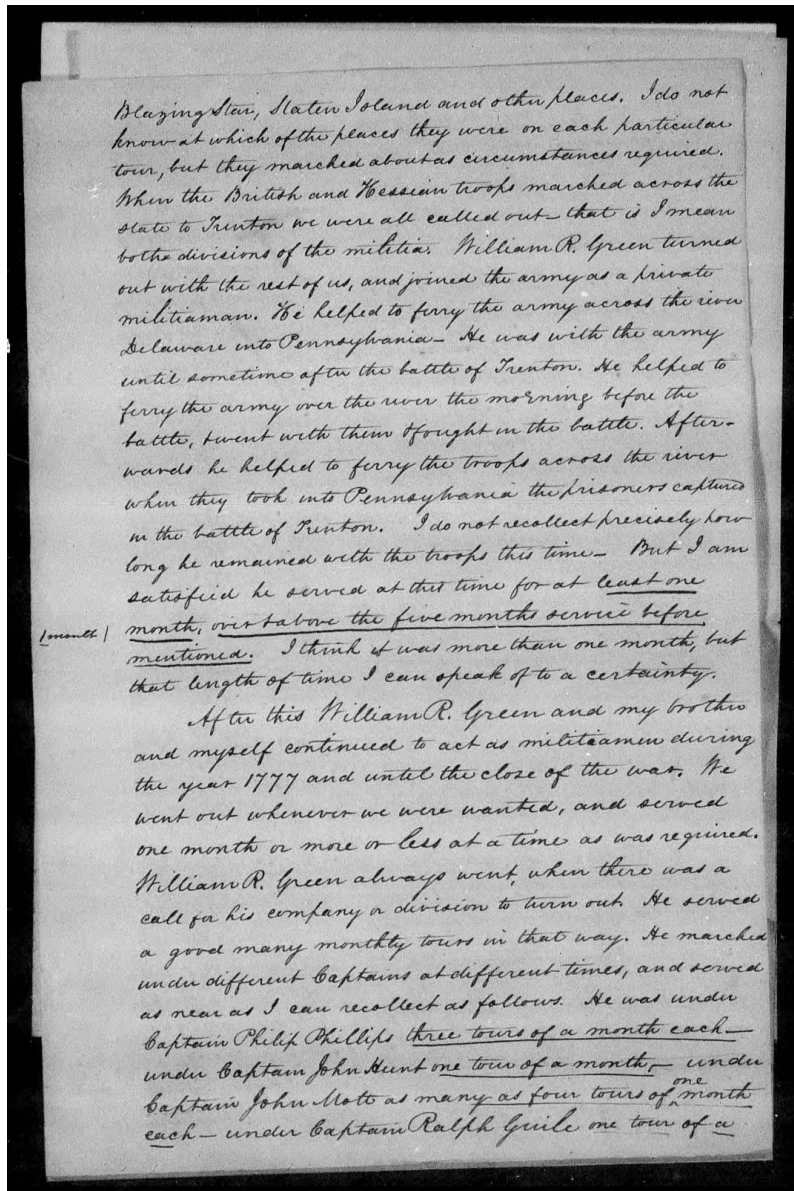 Blazing Star, Staten Island and other places. I do not
know at which of the places they were on each particular
tour, but they marched about as circumstances required.
When the British and Hessian troops marched across the
state to Trenton we were all called out – that is I mean
bothe divisions of the militia. William R. Green turned
out with the rest of us, and joined the army as a private
militiaman. He helped to ferry the army across the river
Delaware into Pennsylvania – He was with the army
until sometime after the battle of Trenton. He helped to
ferry the army over the river the morning before the
battle, & went with them & fought in the battle. After-
wards he helped to ferry the troops across the river
when they took into Pennsylvania the prisoners captured
in the battle of Trenton. I do not recollect precisely how
long he remained with the troops this time – But I am
satisfied he served at this time for at least one
1 month month, over & above the five months service before
mentioned. I think it was more than one month, but
that length of time I can speak of to a certainty.
After this William R. Green and my brother
and myself continued to act as militiamen during
the year 1777 and until the close of the war. We
went out whenever we were wanted, and served
one month or more or less at a time as was required.
William R. Green always went, when there was a
call for his company or division to turn out. He served
a good many monthly tours in that way. He marched
under different Captains at different times, and served
as near as I can recollect as follows. He was under
Captain Philip Phillips three tours of a month each –
under Captain John Hunt one tour of a month, – under
Captain John Mott as many as four tours of one month
each – under Captain Ralph Guile one tour of a